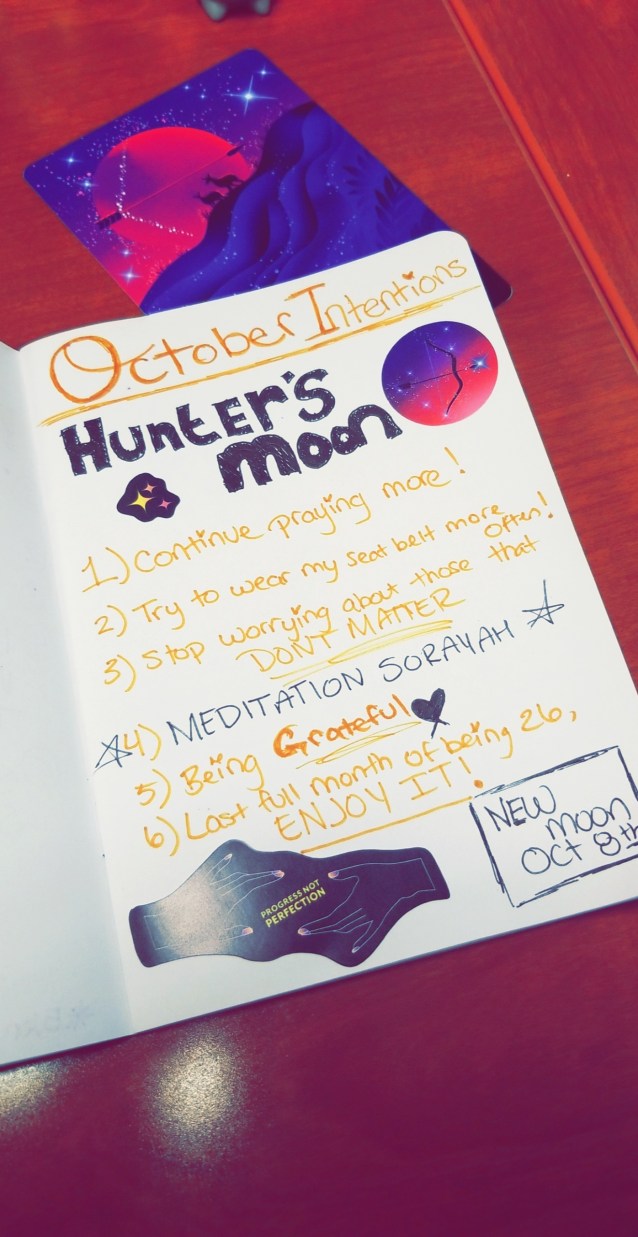 October Intentions
HUNTER'S
moon
1) Continue praying more!
2) Try to wear my seat belt more
often!
3) Stop worrying about those that
DONT MATTER
4) MEDITATION SORAYAH
5) Being Grateful
6) Last full month of being 26,
ENJOY IT!
NEW
moon
Oct 8th
PROGRESS NOT
PERFECTION